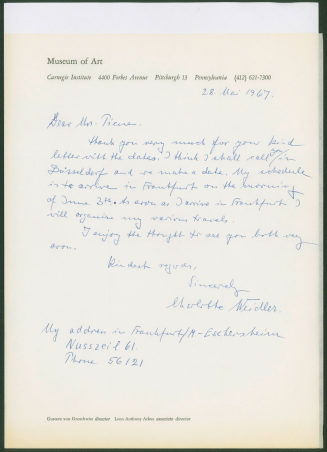 Museum of Art
Carnegie Institute 4400 Forbes Avenue Pittsburgh 13 Pennsylvania (412) 621-7300
28 Mai 1967.
Dear Mrs. Piene.
Thank you very much for your kind
letter with the dates. I think I shall call you in
Düsseldorf and we make a date. My schedule
is to arrive in Frankfurt on the morning
of June 3rd. As soon as I arrive in Frankfurt I
will organise my various travels.
I enjoy the thought to see you both very
soon.
Kindest regards,
Sincerely
Charlotte Weidler.
My address in Frankfurt/M-Eschersheim
Nusszeil 61.
Phone 56121
Gustave von Groschwitz director Leon Anthony Arkus associate director